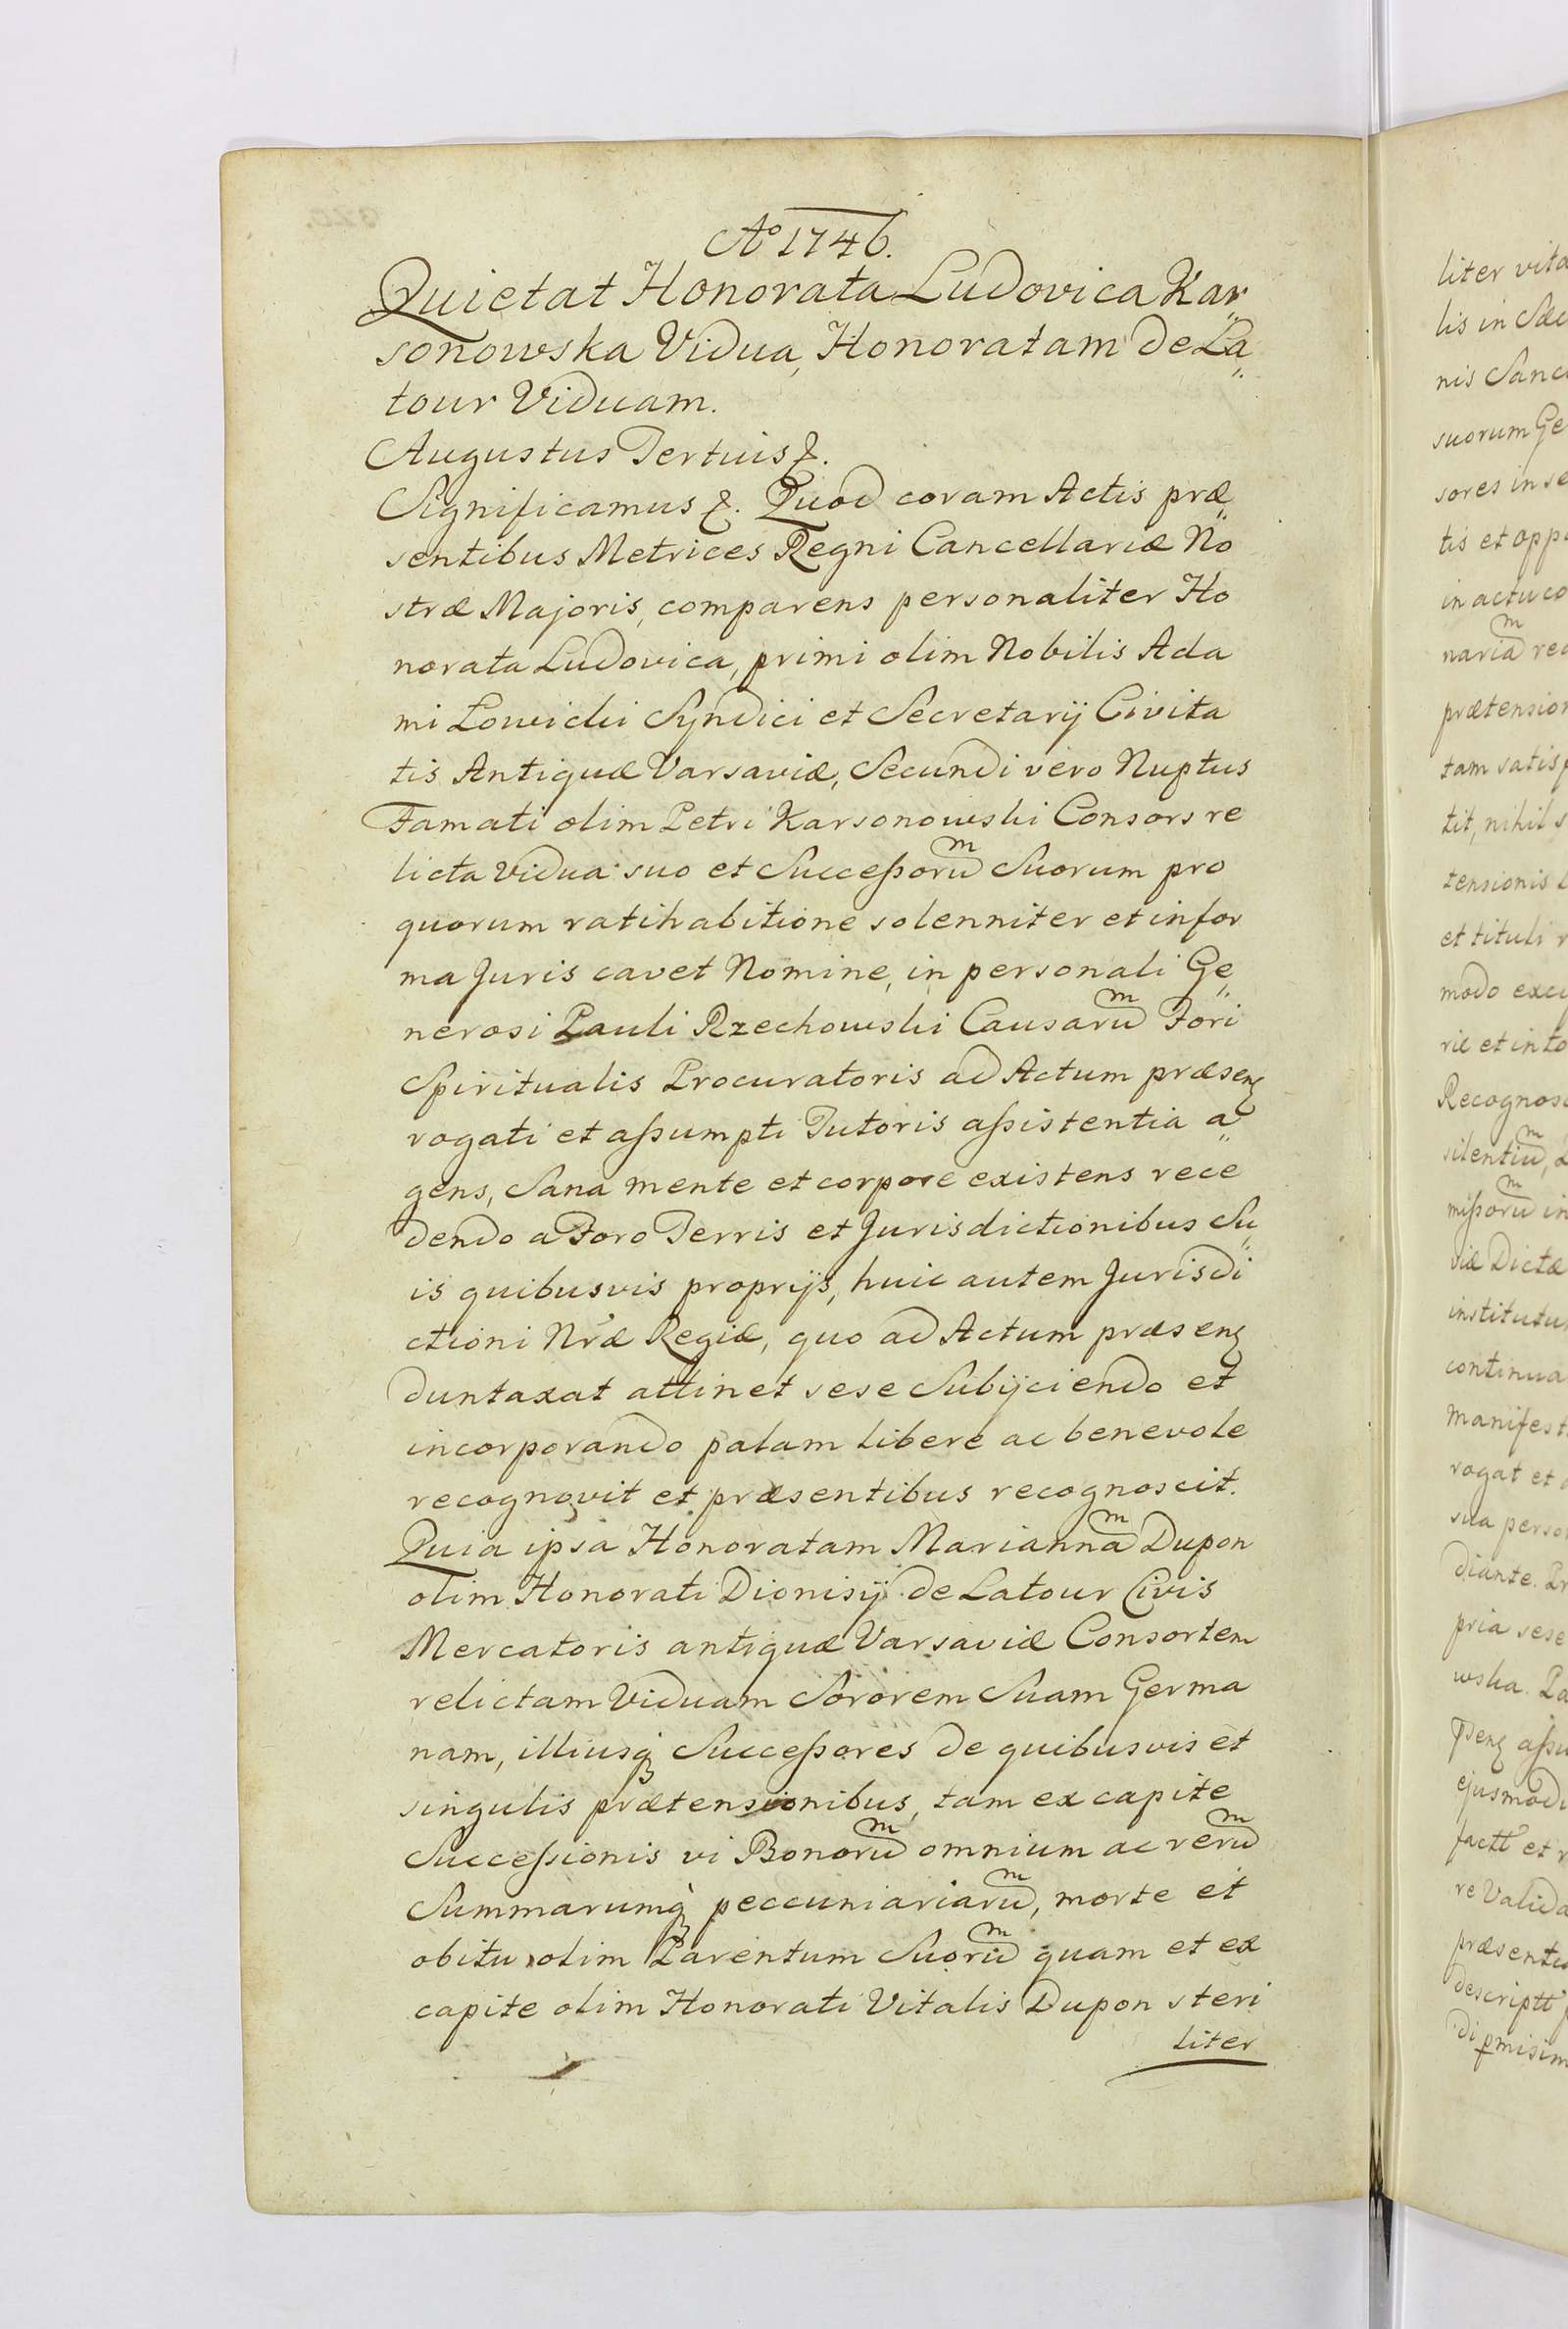 Aº 1746.
Quietat Honorata Ludovica Kar„
sonowska Vidua, Honoratam de La„
tour Viduam.
Augustus Tertuis &.
Significamus &. Quod coram Actis præ„
sentibus Metrices Regni Cancellariæ No
stræ Majoris, comparens personaliter Ho
norata Ludovica, primi olim Nobilis Ada
mi Lowicki Syndici et Secretarij Civita
tis Antiquæ Varsaviæ, Secundi vero Nuptus
Famati olim Petri Karsonowski Consors re
licta Vidua suo et Succeßorum Suorum pro
quorum ratihabitione solenniter et in for
ma Juris cavet Nomine, in personali Ge„
nerosi Pauli Rzechowski Causarum Fori
Spiritualis Procuratoris ad Actum præsenꝫ
rogati et aßumpti Tutoris aßistentia a„
gens, Sana mente et corpore existens rece
dendo a Foro Terris et Jurisdictionibus Su„
is quibusvis proprijs, huic autem Jurisdi
ctioni Nræ Regiæ, quo ad Actum præsenꝫ
duntaxat attinet sese Subijciendo et
incorporando palam libere ac benevole
recognovit et præsentibus recognoscit.
Quia ipsa Honoratam Mariannam Dupon
olim Honorati Dionisij de Latour Civis
Mercatoris antiquæ Varsaviæ Consortem
relictam Viduam Sororem Suam Germa
nam, illiusqꝫ Succeßores de quibusvis et
singulis prætensionibus, tam ex capite
Succeßionis vi Bonorum omnium ac rerum
Summarumqꝫ peccuniariarum, morte et
obitu olim Parentum Suorum quam et ex
capite olim Honorati Vitalis Dupon steri
liter
liter vita
lis in Sæc
nis Sanc
suorum Ge
sores in se
tis et oppi
in actu co
nariam rec
prætension
tam satisf
tit, nihil s
tensionis
et tituli r
modo exci
rie et in to
Recognosc
silentium,
mißorum in
viæ Dictæ
institutu
continua
manifest
rogat et
sua perso
diante. Pr
pria sese
wska. Pa
aßu
ejusmodi
factt et r
re Valida
præsentia
descriptt
di pmisim